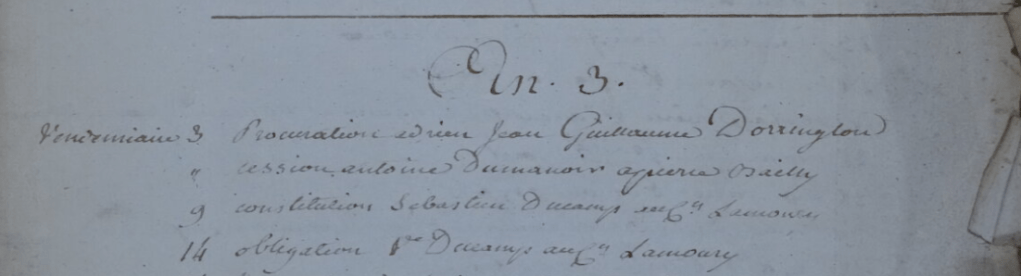 An. 3.
Vendemiaire 3 Procuration adrien Jean Guillaume Dorrington
" cession antoine Dumanoir a pierre Bailly
9 constitution Sebastien Ducamp au Cn Lamoury
14 obligation Ducamp au Cn Lamoury